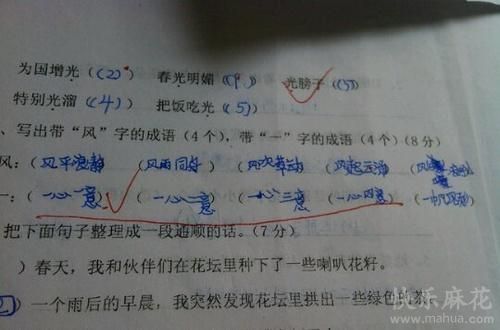 为国增光（(2)） 春光明媚（ ） 光膀子（ ）
特别光溜（(4)） 把饭吃光（(5)）
、写出带“风”字的成语（4个），带“一”字的成语（4个）（8分）
风：（风平浪静 （风雨同舟） （风吹草动） （风起云涌） （风
一：（一心一意） （一心二意 （一心三意 （一心四意） （一帆风顺）
把下面句子整理成一段通顺的话。（7分）
）春天，我和伙伴们在花坛里种下了一些喇叭花籽。
2）一个雨后的早晨，我突然发现花坛里拱出一些绿色的
快乐麻花
www.mahua.com